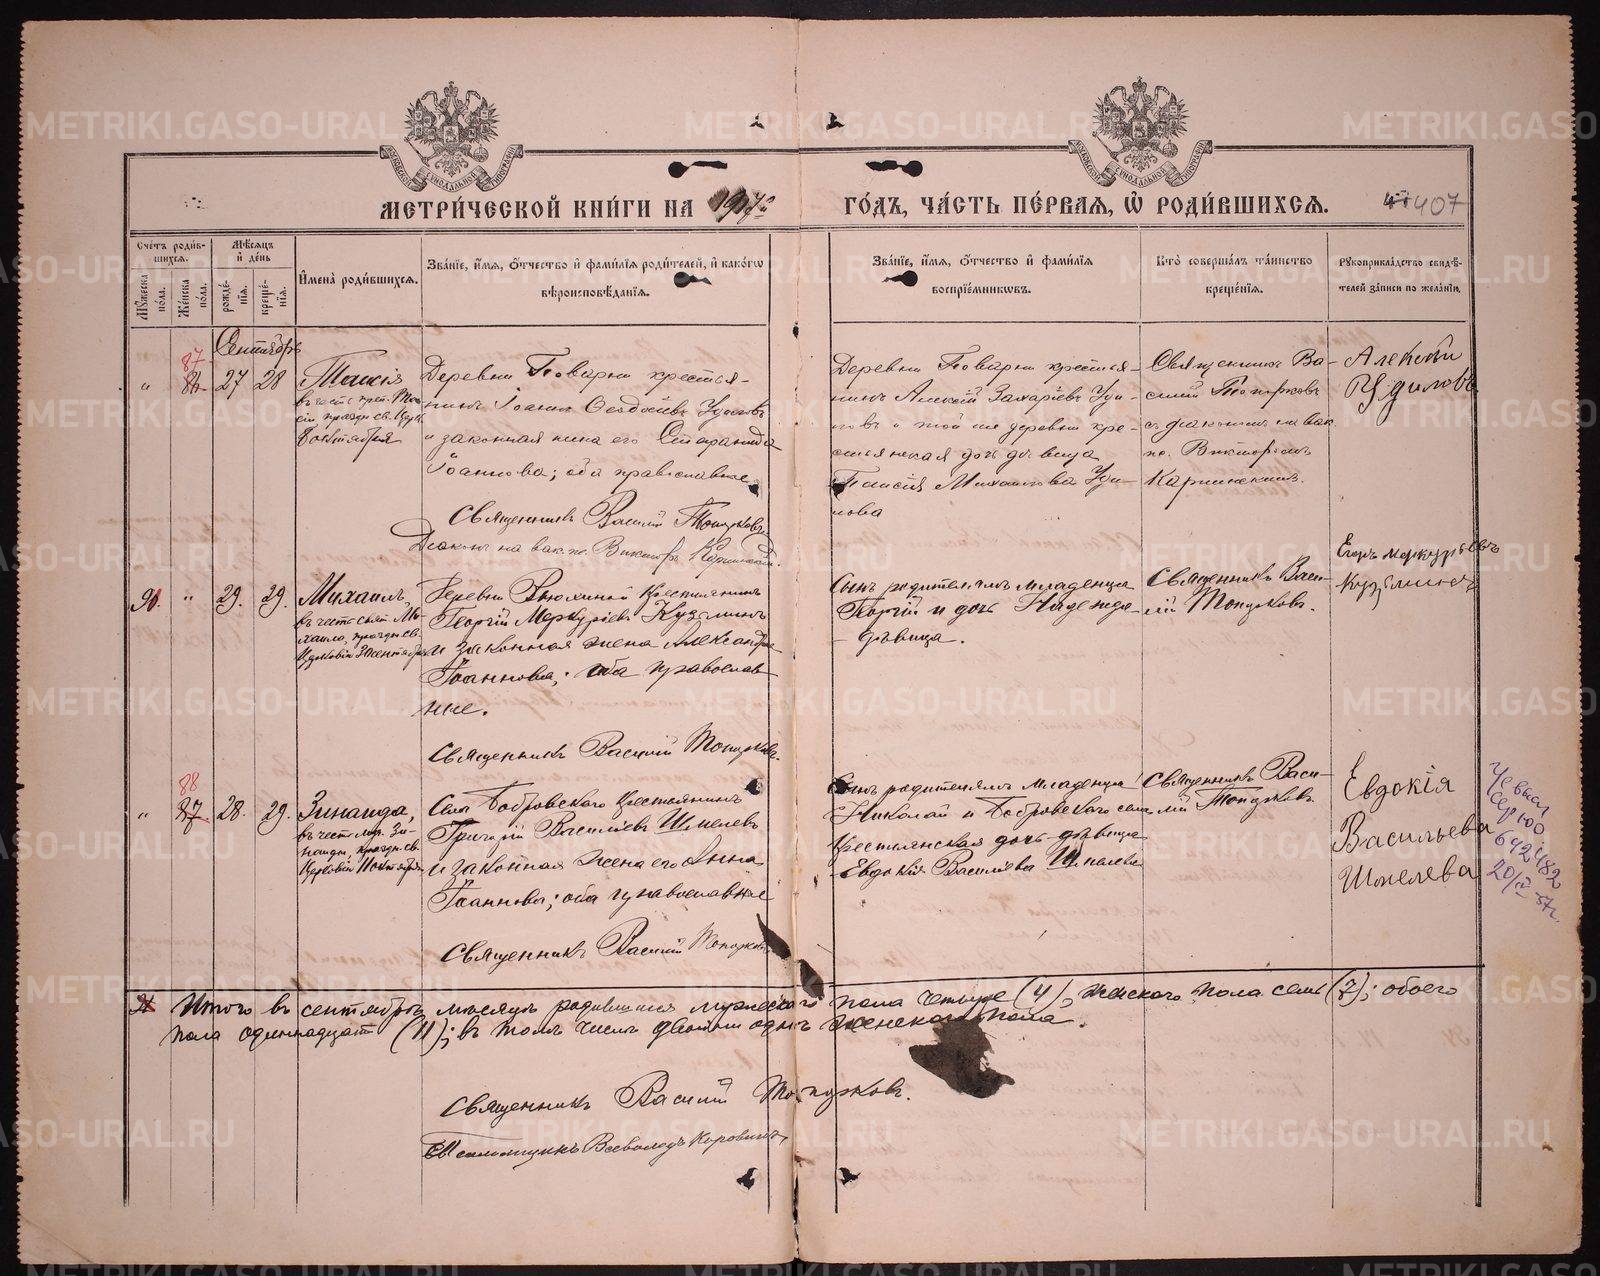 МЕТРИ́ЧЕСКОЙ КНИ́ГИ НА 1917 го
ГО́ДЪ, ЧА́СТЬ ПЕ́РВАЯ, Ѡ РОДИ́ВШИХСѦ.
407
Сче́тъ роди́в-
шихсѧ.
Мꙋ́жеска по́ла.
Же́нска по́ла.
Мѣ́сѧцъ и де́нь
рожде́нїѧ.
креще́нїѧ.
И҆мена̀ роди́вшихсѧ.
Зва́нїе, и҆́мѧ, ѻ҆́тчество и҆ фами́лїѧ роди́телей, и҆ како́гѡ
вѣроисповѣ́данїѧ.
Зва́нїе, и҆́мѧ, ѻ҆́тчество и҆ фами́лїѧ
воспрїе́мникѡвъ.
Кто̀ соверша́лъ та́инство
креще́нїѧ.
Рꙋкоприкла́дство свидѣ́-
телей за́писи по жела́нїю.
Сентябрь
87
" 27 28
Таисія
въ честь преп. Таи-
сіи праздн. св. Церк.
8 октября
Деревни Поварни крестья-
нинъ Іоаннъ
и законная жена его
Іоаннова; оба православные
Священникъ Василій Топорковъ
Діаконъ на вак. пс. Викторъ Карпинскій.
Деревни Поварни крестья-
нинъ Алексѣй Захаріевъ
и той же деревни кре-
стьянская дочь дѣвица
Таисія Михайлова
Священникъ Ва-
силій Топорковъ
съ діакономъ на вак.
пс. Викторомъ
Карпинскимъ.
Алексѣй
" 29. 29.
Михаилъ,
въ честь свят. Ми-
хаила, праздн. св.
Церковію 30 сентября
Деревни Крестьянинъ
Георгій Меркуріевъ Кузьминъ
и законная жена Александра
Іоаннова; оба православ
ные.
Священникъ Василій Топорковъ.
Сынъ родителямъ младенца
Георгій и дочь Надежда
дѣвица.
Священникъ Васи-
лій Топорковъ.
Егоръ Меркурьевъ
Кузьминъ
88
" 28. 29.
Зинаида,
въ честь муч. Зи-
наиды, праздн. св.
Церковію 11 октября
Села Бобровскаго Крестьянинъ
Григорій Василіевъ Шмелевъ
и законная жена его Анна
Іоаннова; оба православные
Священникъ Василій Топорковъ
Сынъ родителямъ младенца
Николай и Бобровскаго села
Крестьянская дочь дѣвица
Евдокія Василіева Шмелева
Священникъ Васи-
лій Топорковъ.
Евдокія
Васильева
Шмелева
642482
20/IV 57г.
Итого въ сентябрѣ мѣсяцѣ родившихся мужескаго пола четыре (4), женскаго пола семь (7); обоего
пола одиннадцать (11); въ томъ числѣ двойни однѣ женскаго пола.
Священникъ Василій Топорковъ.
Псаломщикъ Всеволодъ Коровинъ
METRIKI.GASO-URAL.RU